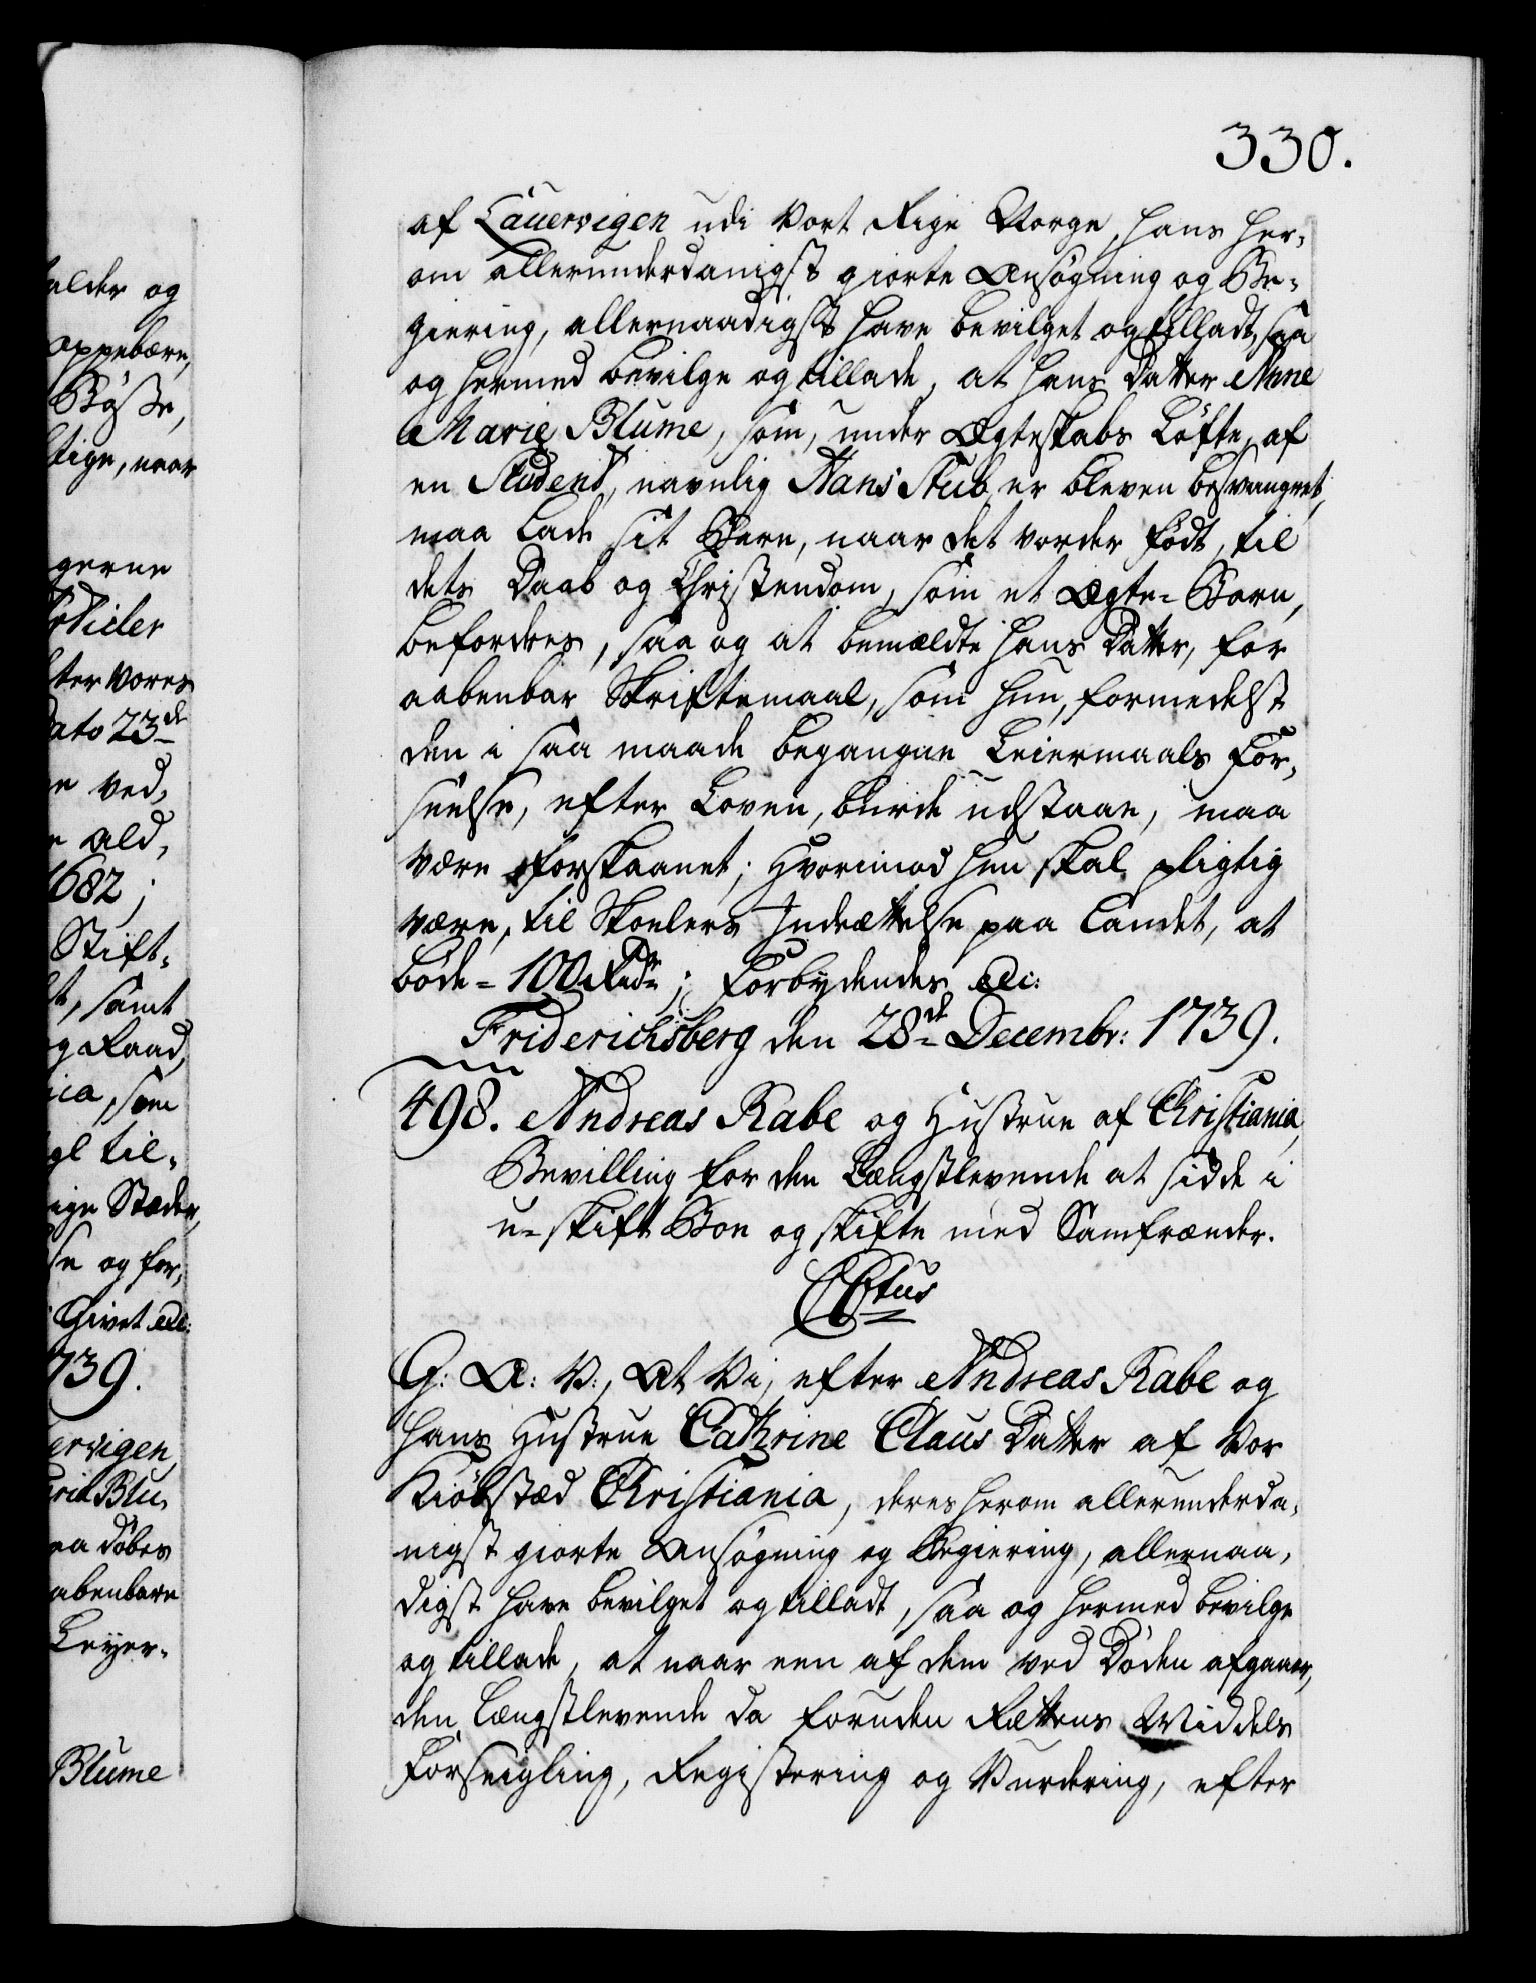 330.
af Lauervigen udi Vort Rige Norge, hans her-
om allerunderdanigst giorte Ansøgning og Be-
giering, allernaadigst have bevilget og tilladt, saa
og hermed bevilge og tillade, at hans Datter Anne
Marie Blume, som, under Ægteskabs Løfte, af
en Student, navnlig Hans Stub, er bleven besvangret,
maa lade sit Barn, naar det vorder født, til
dets Daab og Christendom, som et Ægte-Barn,
befordres, saa og at bemældte hans Datter, for
aabenbar Skriftemaal, som hun, formedelst
den i saa maade begangne Leiermaals For-
seelse, efter Loven, burde udstaae, maa
være forskaanet; Hvorimod hun skal pligtig
være, til Skolers Indrættelse paa Landet, at
bøde = 100 Rdr; Forbydendes etc:
Friderichsberg den 28de Decembr: 1739.
498. Andreas Rabe og Hustrue af Christiania,
Bevilling for den Længstlevende at sidde i
u-skift Boe og skifte med Samfrænder.
C 6tus
G: A: V:, At Vi, efter Andreas Rabe og
hans Hustrue Cathrine Claus Datter af Vor
Kiøbstæd Christiania, deres herom allerunderda-
nigst giorte Ansøgning og Begiering, allernaa-
digst have bevilget og tilladt, saa og hermed bevilge
og tillade, at naar een af dem ved Døden afgaaer,
den Længstlevende da foruden Rettens Middels
Forseigling, Registering og Vurdering, efter
alder og
oppebære,
Bøsse,
stige, naar
gerne
ter Vores
Dato 23de
ved,
ald,
1682;
Stift-
samt
Raad,
som
til-
Stæder,
og for,
Givet etc:
1739.
ervigen,
Blu-
døbes
abenbare
Leyer-
Blume